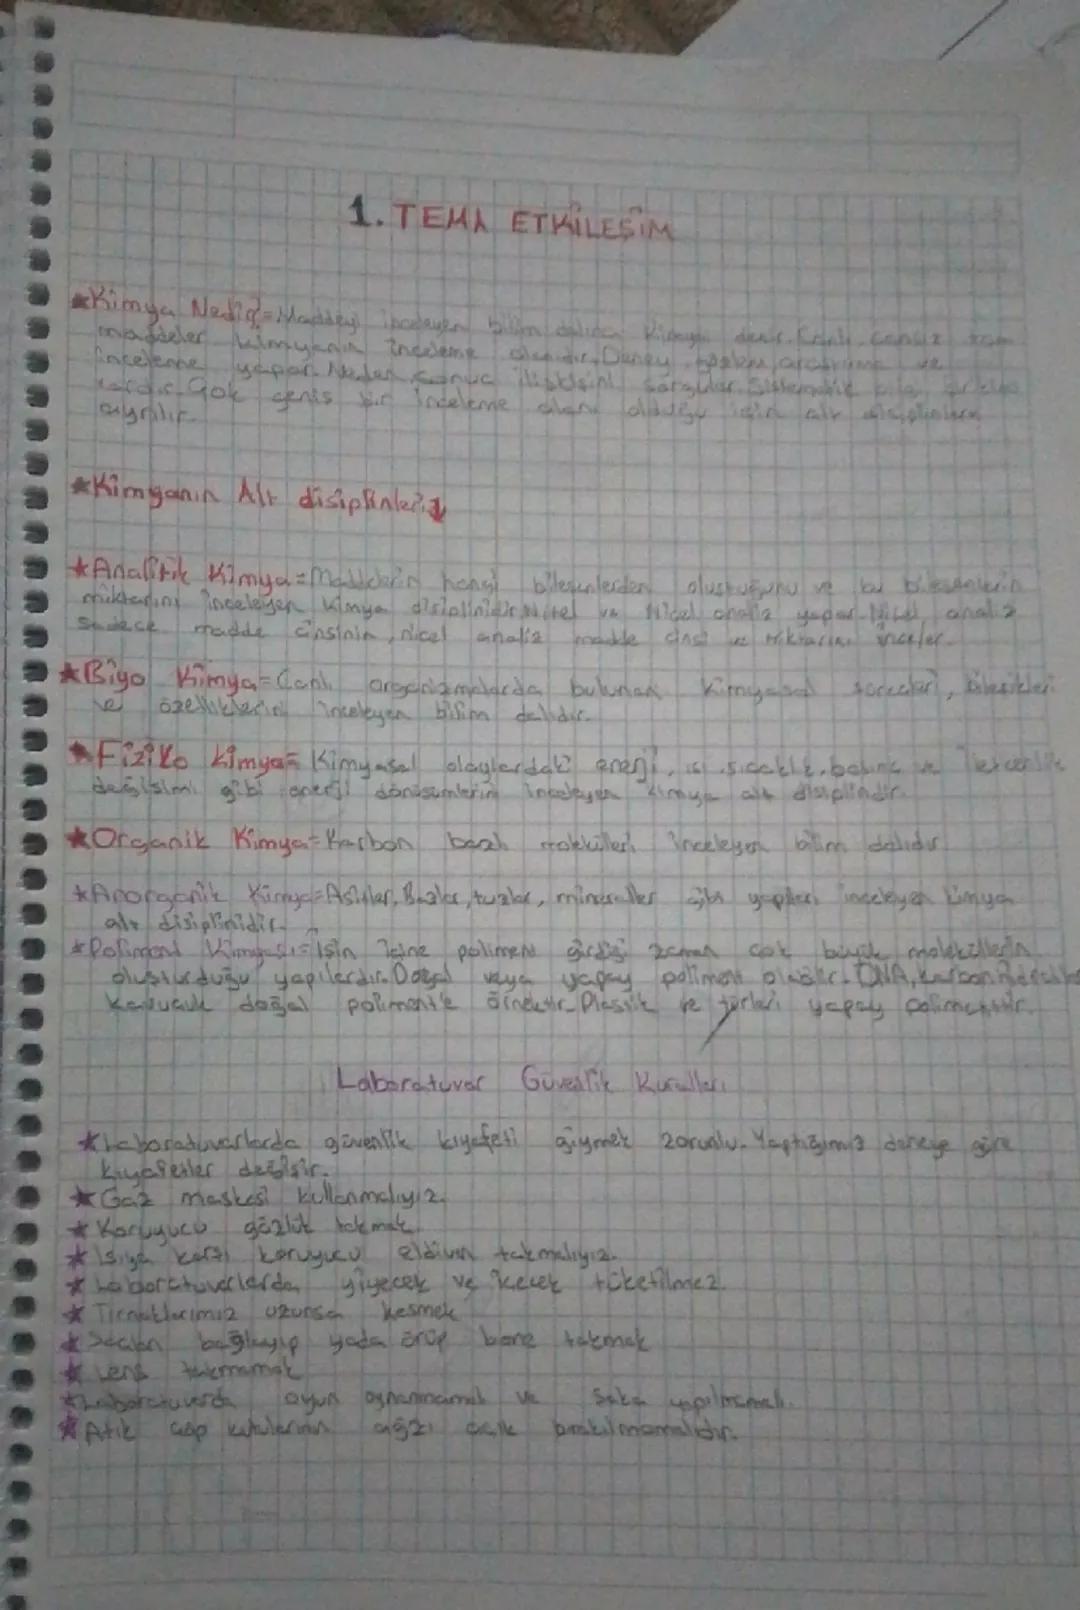 1. TEMA ETKİLEŞİM
★Kimya Nedir?= Maddeyi inceleyen bilim dalına kimya denir. Canlı cansız tüm
maddeler kimyanın inceleme alanıdır. Deney, gözlem, araştırma ve
inceleme yapar. Neden sonuç ilişkisini sorgular. Sistematik bilgi
vardır. Çok geniş bir inceleme alanı olduğu için alt disiplinlere
ayrılır.
★Kimyanın Alt disiplinleri↓
★Analitik Kimya=Maddelerin hangi bileşenlerden oluştuğunu ve bu bileşenlerin
miktarını inceleyen kimya disiplinidir. Nitel ve Nicel analiz yapar. Nitel analiz
sadece madde cinsinin, nicel analiz madde cinsi ve miktarını inceler.
★Biyo Kimya=Canlı organizmalarda bulunan kimyasal süreçleri, bileşikleri
ve özelliklerini inceleyen bilim dalıdır.
★Fiziko kimya= Kimyasal olaylardaki enerji, ısı, sıcaklık, basınç ve iletkenlik
değişimi gibi enerji dönüşümlerini inceleyen kimya alt disiplindir.
★Organik Kimya=Karbon bazlı molekülleri inceleyen bilim dalıdır
★Anorganik Kimya=Asitler, Bazlar, tuzlar, mineraller gibi yapıları inceleyen kimya
alt disiplinidir.
★Poliment Kimyası=İşin içine poliment girdiği zaman çok büyük moleküllerin
oluşturduğu yapılardır. Doğal veya yapay poliment olabilir. DNA, karbonhidratlar
kauçuk doğal poliment'e örnektir. Plastik ve türleri yapay polimenttir.
Laboratuvar Güvenlik Kuralları
★Laboratuvarlarda güvenlik kıyafeti giymek zorunlu. Yaptığımız deneye göre
kıyafetler değişir.
★Gaz maskesi kullanmalıyız.
★Koruyucu gözlük takmak.
★Isıya karşı koruyucu eldiven takmalıyız.
★Laboratuvarlarda yiyecek ve içecek tüketilmez.
★Tırnaklarımız uzunsa kesmek
★Saçları bağlayıp yada örüp bone takmak
★Lens takmamak
★Laboratuvarda oyun oynanmamalı ve şaka yapılmamalı.
★Atık çöp kutularının ağzı açık bırakılmamalıdır.